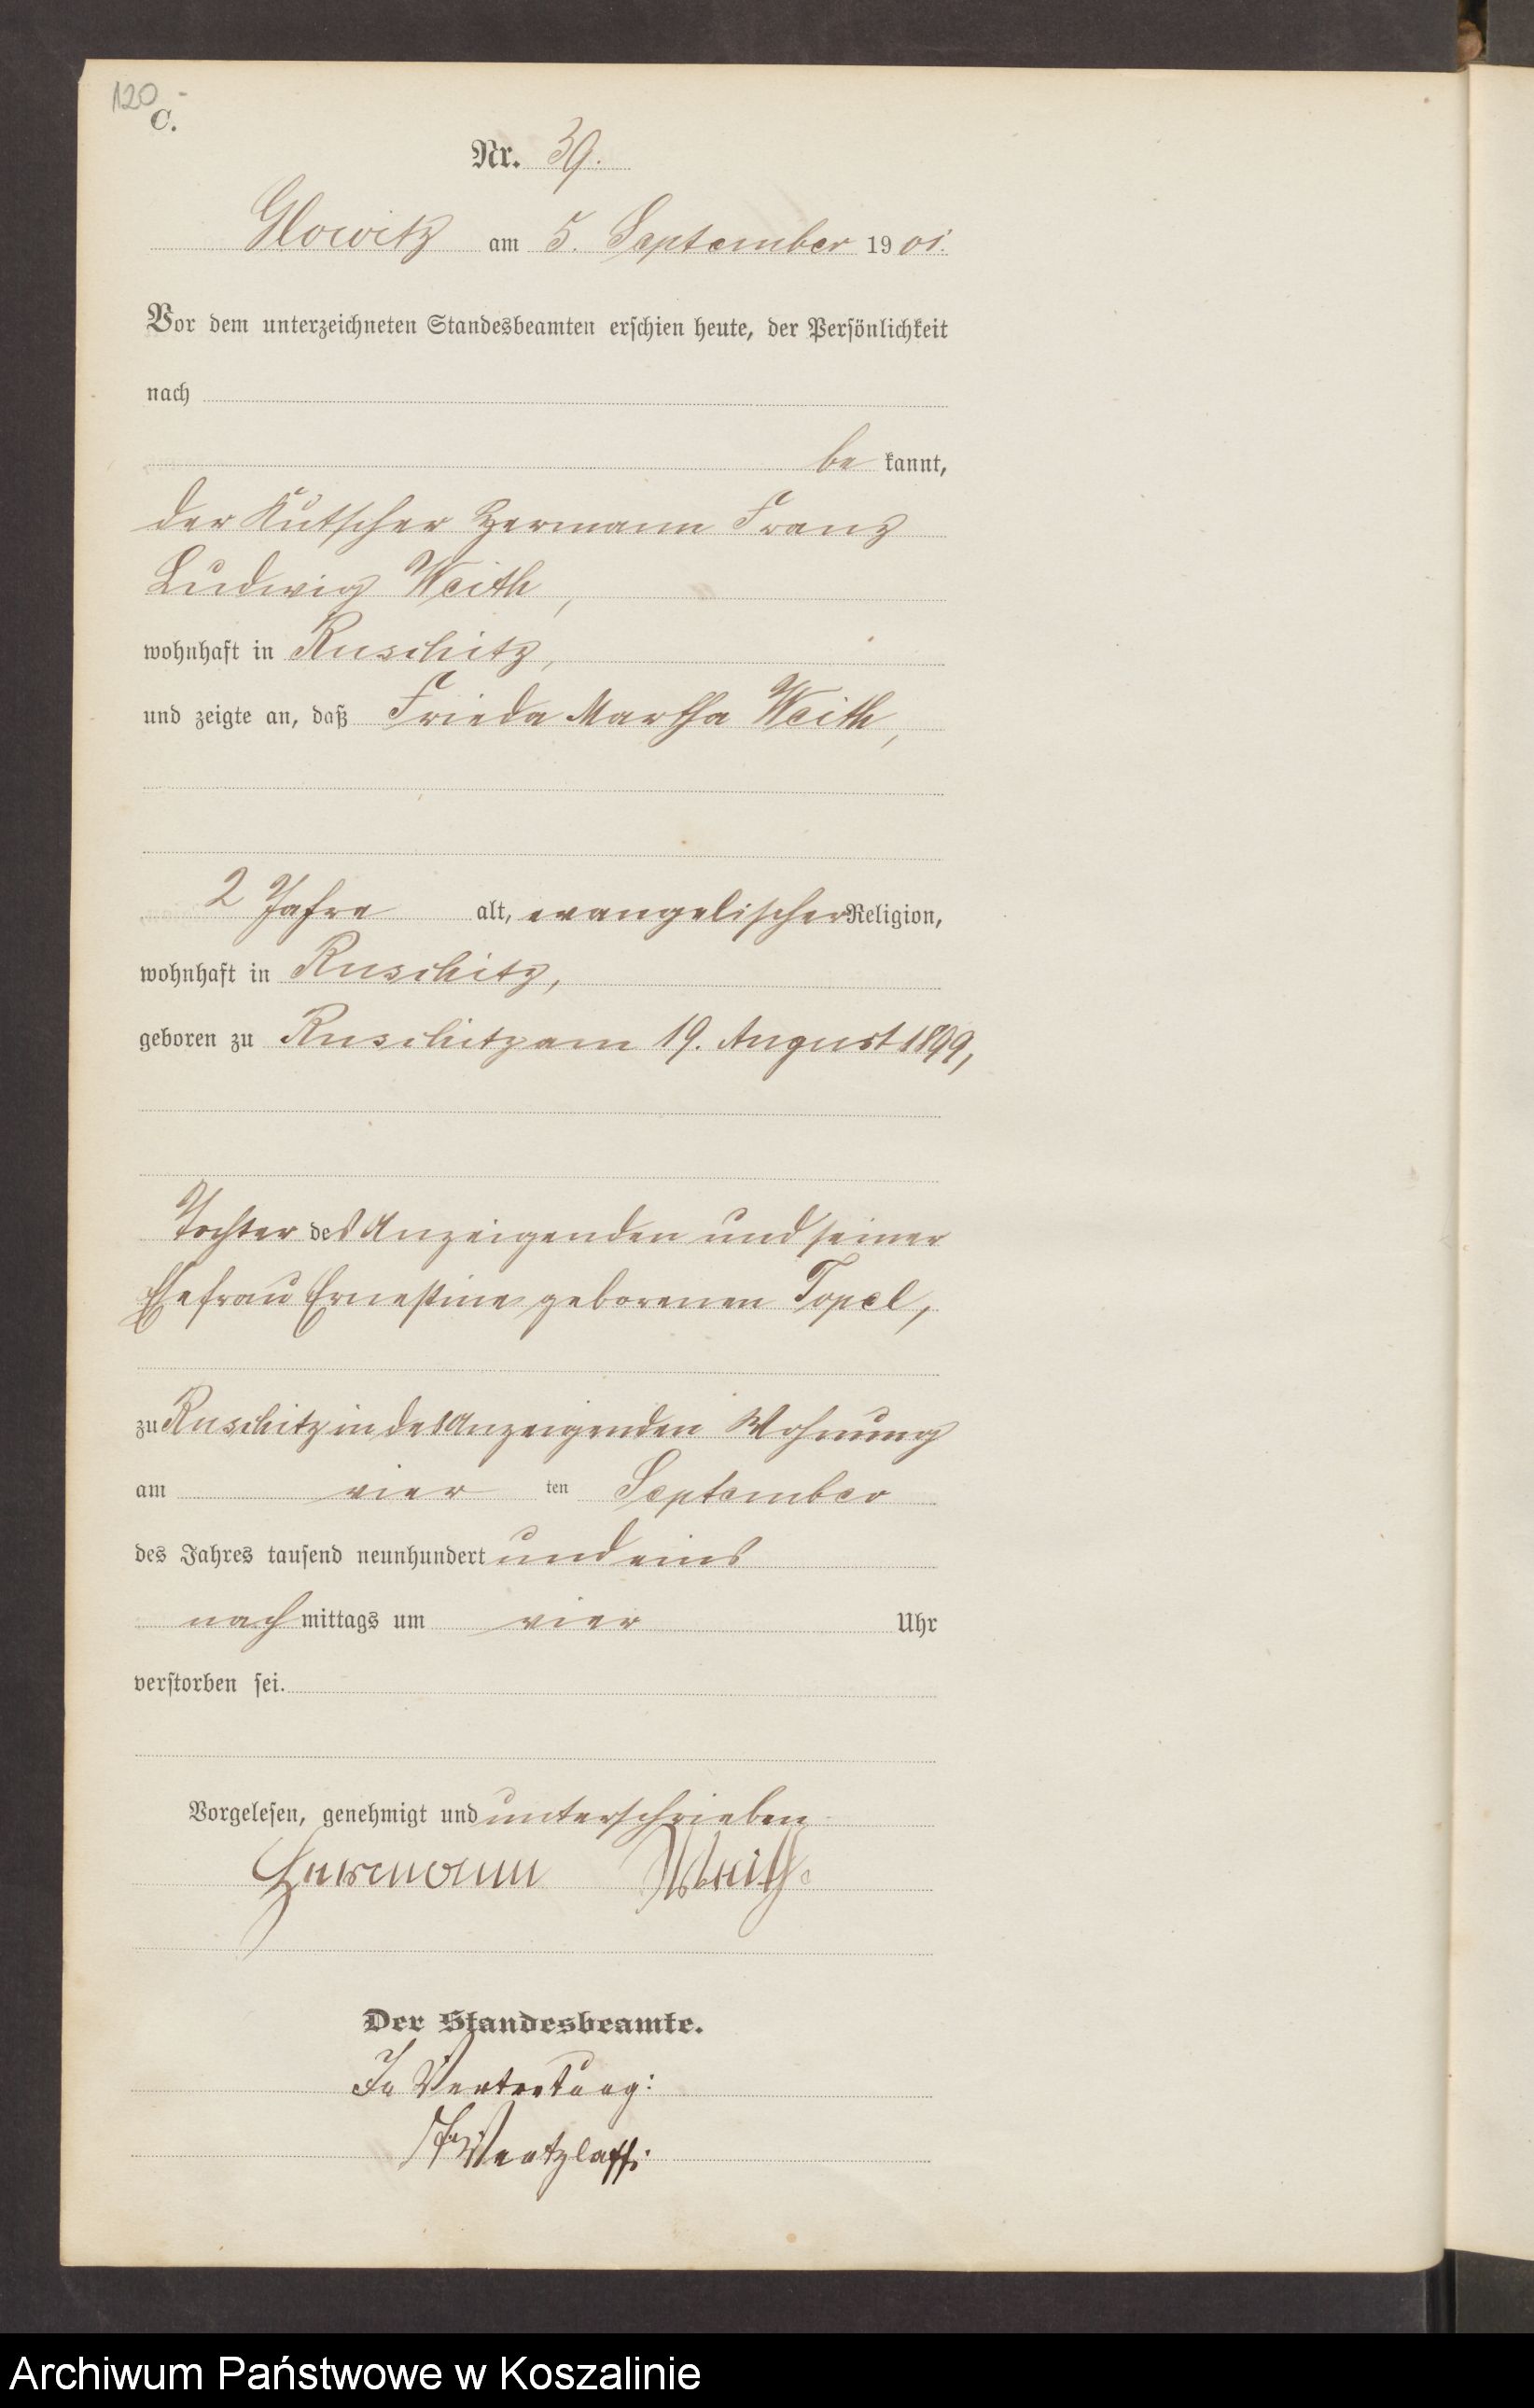 120
C.
Nr. 39.
Glowitz am 5. September 1901.
Vor dem unterzeichneten Standesbeamten erschien heute, der Persönlichkeit
nach
be kannt,
der Kutscher Hermann Franz
Ludwig Weith,
wohnhaft in Ruschitz,
und zeigte an, daß Frieda Martha Weith,
2 Jahre alt, evangelischer Religion,
wohnhaft in Ruschitz,
geboren zu Ruschitz am 19. August 1899,
Tochter des Anzeigenden und seiner
Ehefrau Ernestine geborenen Topel,
zu Ruschitz in des Anzeigenden Wohnung
am vier ten September
des Jahres tausend neunhundert und eins
nach mittags um vier Uhr
verstorben sei.
Vorgelesen, genehmigt und unterschrieben
Hermann Weith
Der Standesbeamte.
In Vertretung:
Ventzlaff.
Archiwum Państwowe w Koszalinie